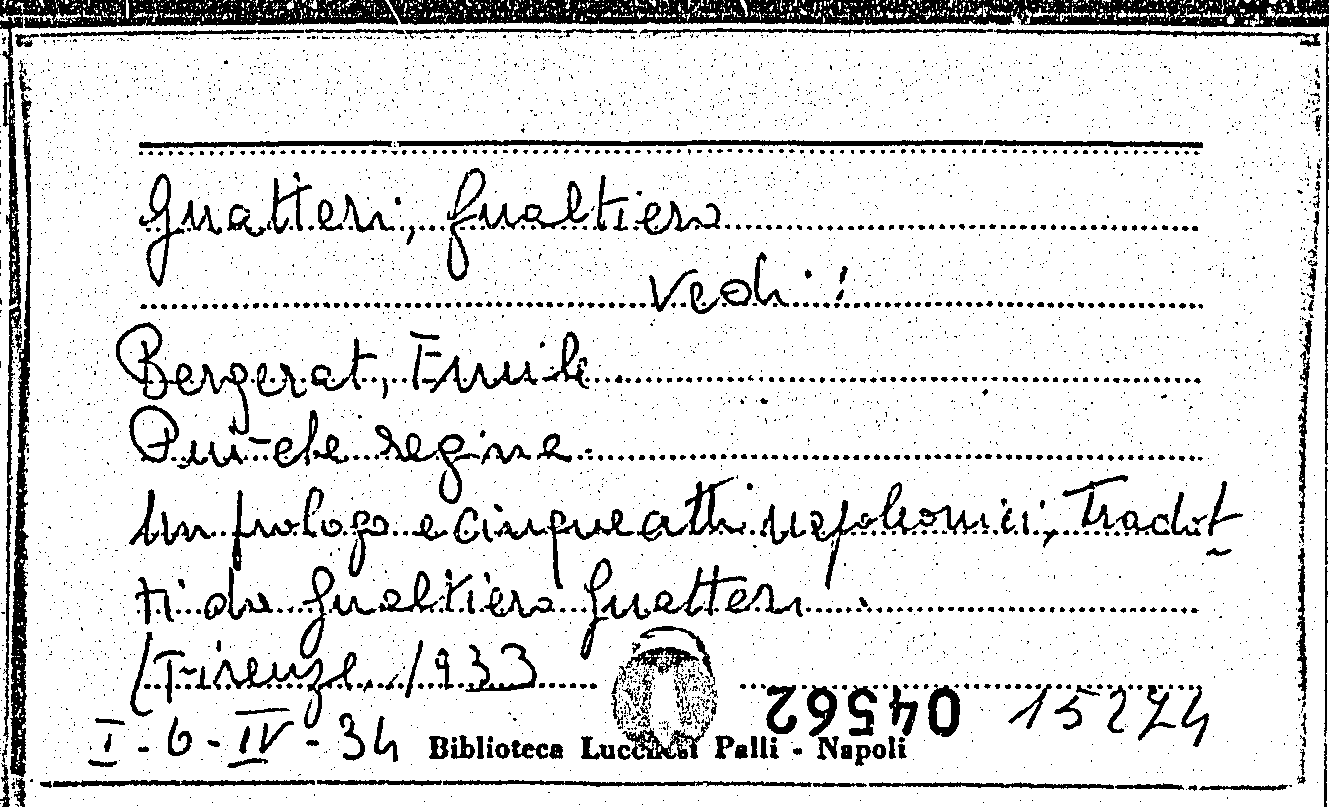 Guatteri, Gualtiero
Vedi:
Bergerat, Emile
Più-che regina
Un prologo e cinque atti napoleonici, tradot
ti da Gualtiero Guatteri
(Firenze, 1933
04562 15274
I-6-IV-34 Biblioteca Lucchesi Palli - Napoli